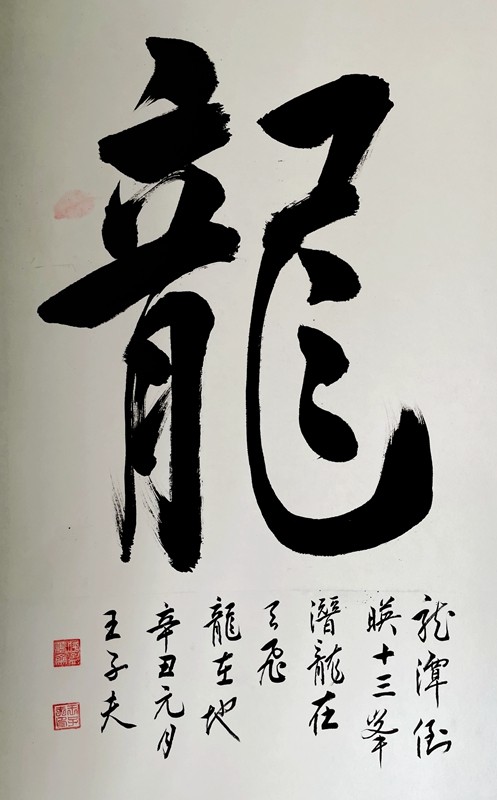 龍
龙潭倒
暎十三峯
潛龍在
天飛
龍在地
辛丑元月
王子夫